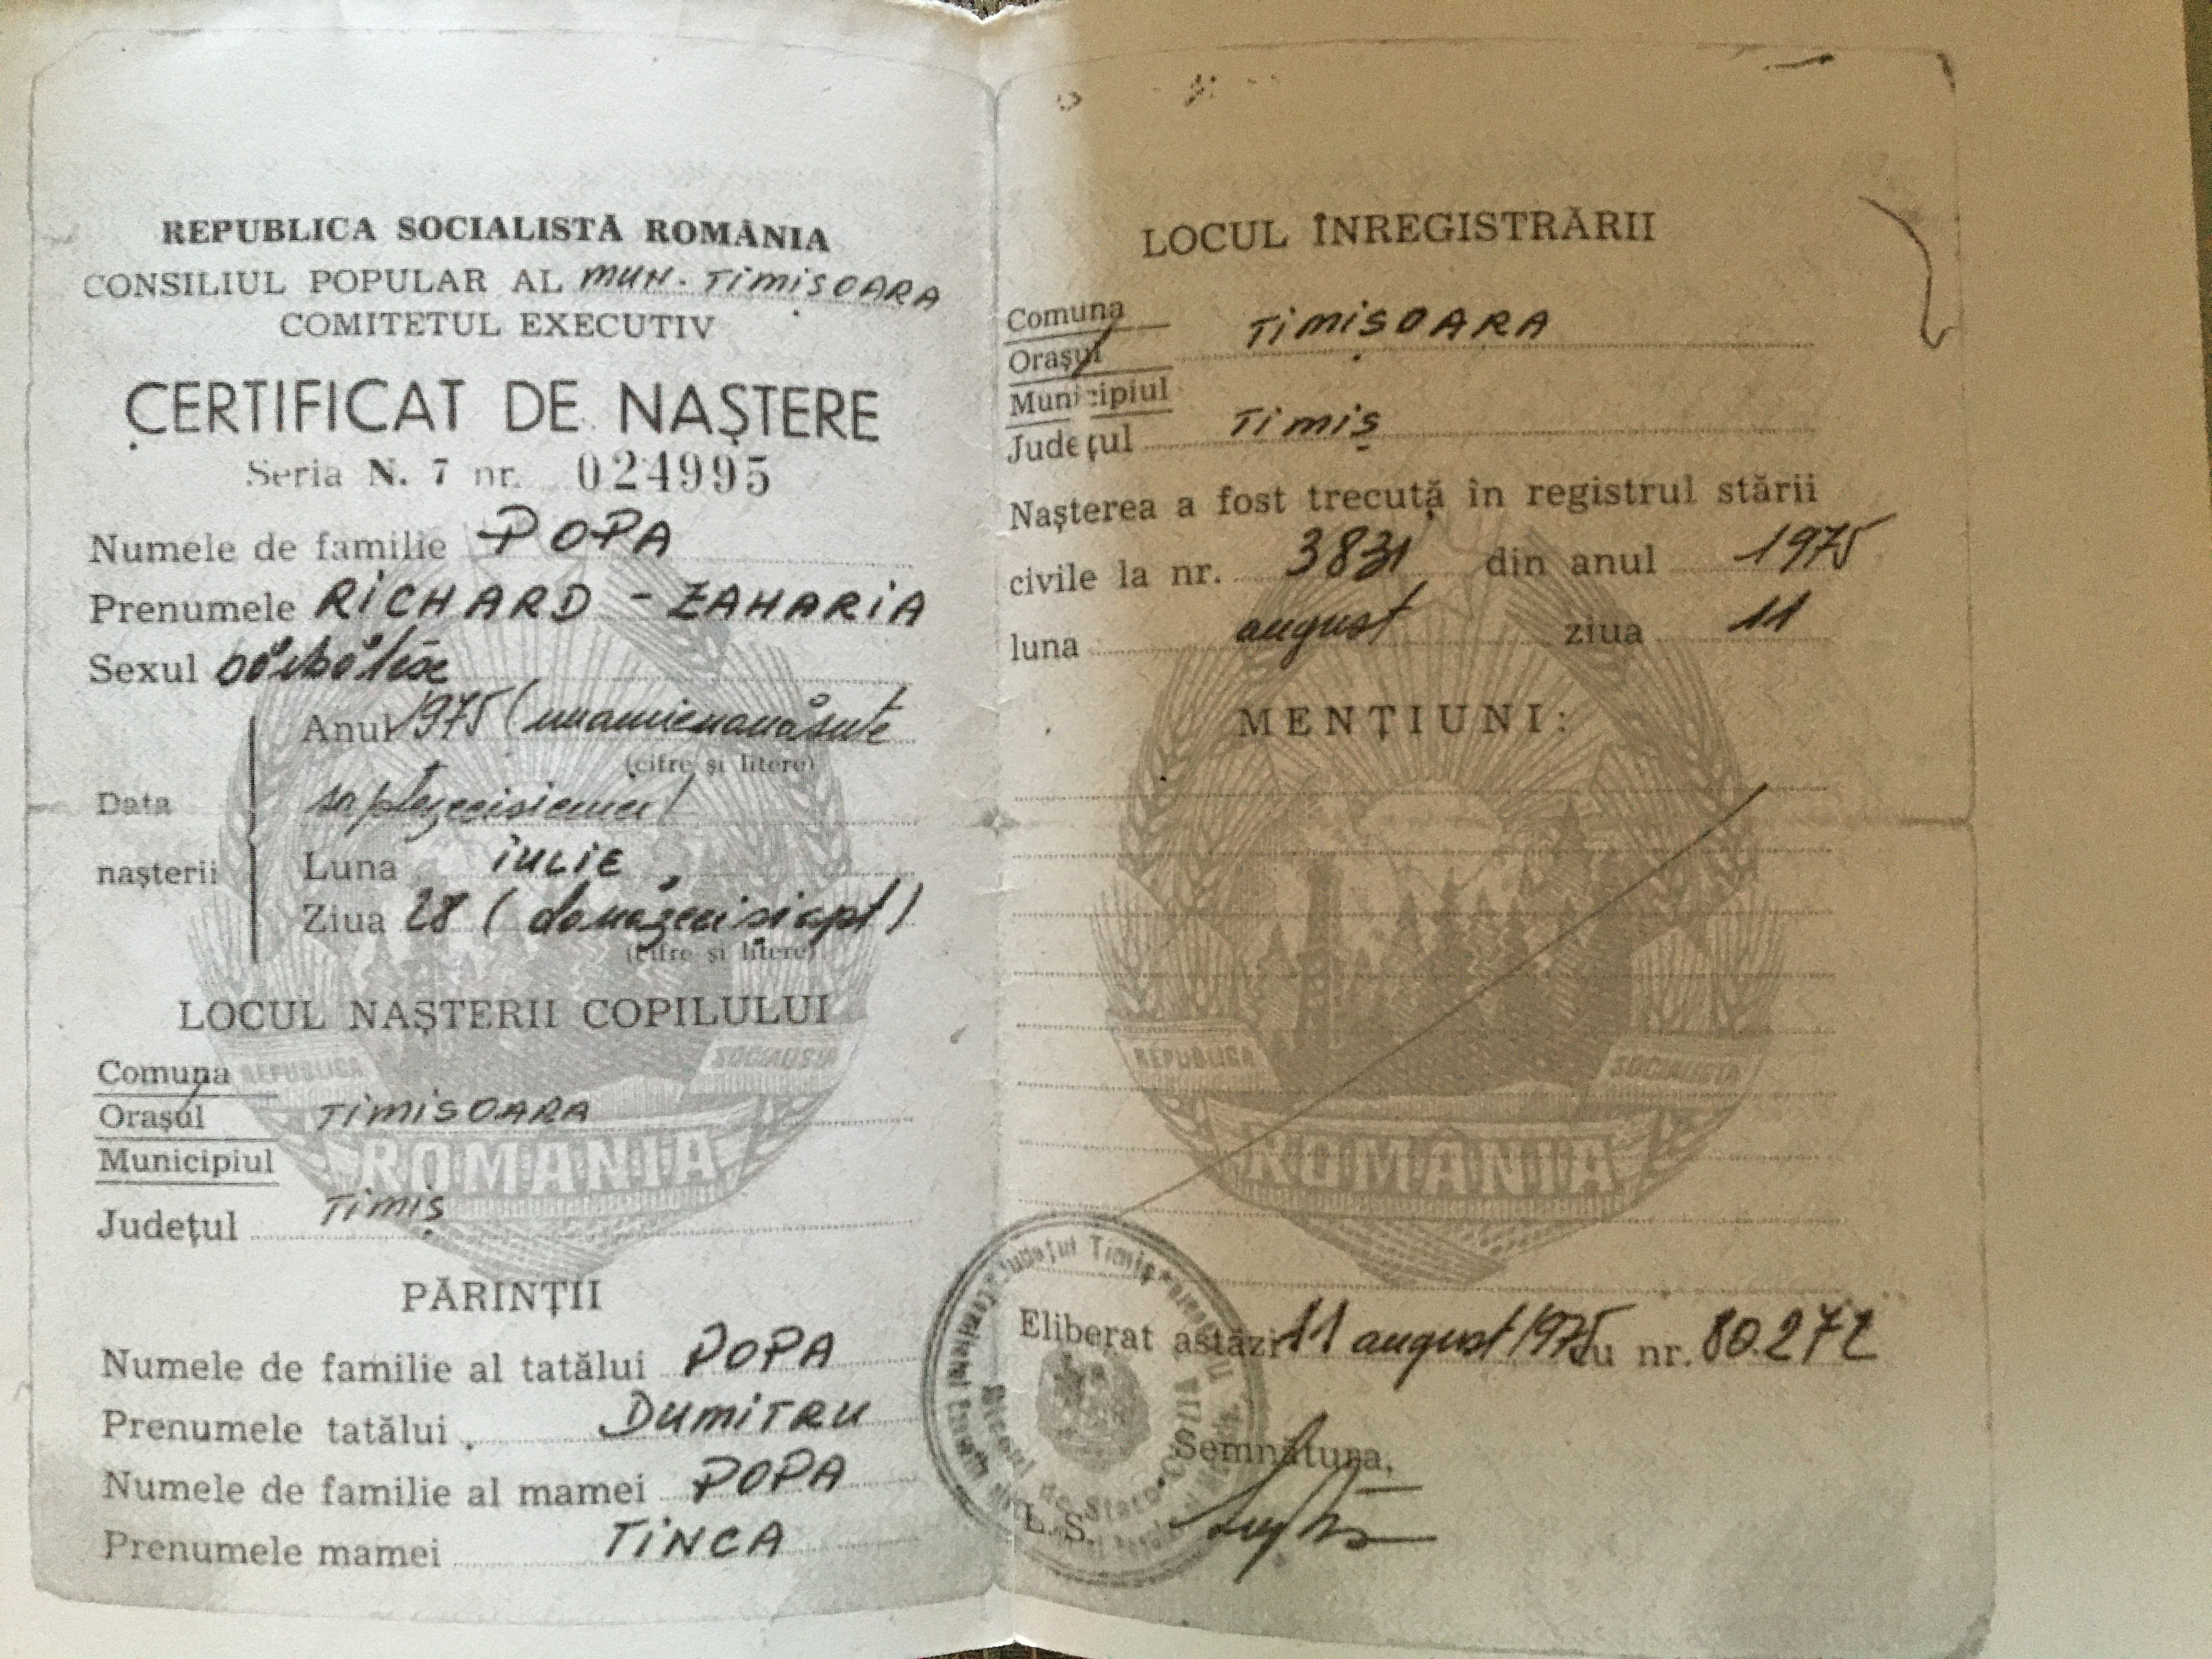 REPUBLICA SOCIALISTĂ ROMÂNIA
CONSILIUL POPULAR AL MUN. TIMIȘOARA
COMITETUL EXECUTIV
CERTIFICAT DE NAȘTERE
Seria N. 7 nr. 024995
Numele de familie POPA
Prenumele RICHARD - ZAHARIA
Sexul bărbătesc
Anul 1975 (unamienouăsute
(cifre și litere)
Data
șaptezecișicinci)
nașterii
Luna iulie
Ziua 28 (douăzecișiopt)
(cifre și litere)
LOCUL NAȘTERII COPILULUI
Comuna
Orașul TIMISOARA
Municipiul
Județul TIMIȘ
REPUBLICA SOCIALISTA
ROMÂNIA
PĂRINȚII
Numele de familie al tatălui POPA
Prenumele tatălui DUMITRU
Numele de familie al mamei POPA
Prenumele mamei TINCA
LOCUL ÎNREGISTRĂRII
Comuna
Orașul TIMIȘOARA
Municipiul
Județul TIMIȘ
Nașterea a fost trecută în registrul stării
civile la nr. 3831 din anul 1975
luna august ziua 11
MENȚIUNI:
REPUBLICA SOCIALISTA
ROMÂNIA
Eliberat astăzi 11 august 1975 cu nr. 80.272
Semnătura,
L. S.
Județul Timiș
de Stat